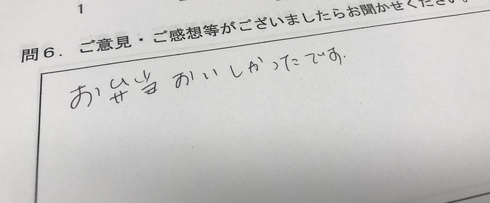 1
問6．ご意見・ご感想等がございましたらお聞かせください
お弁当おいしかったです.